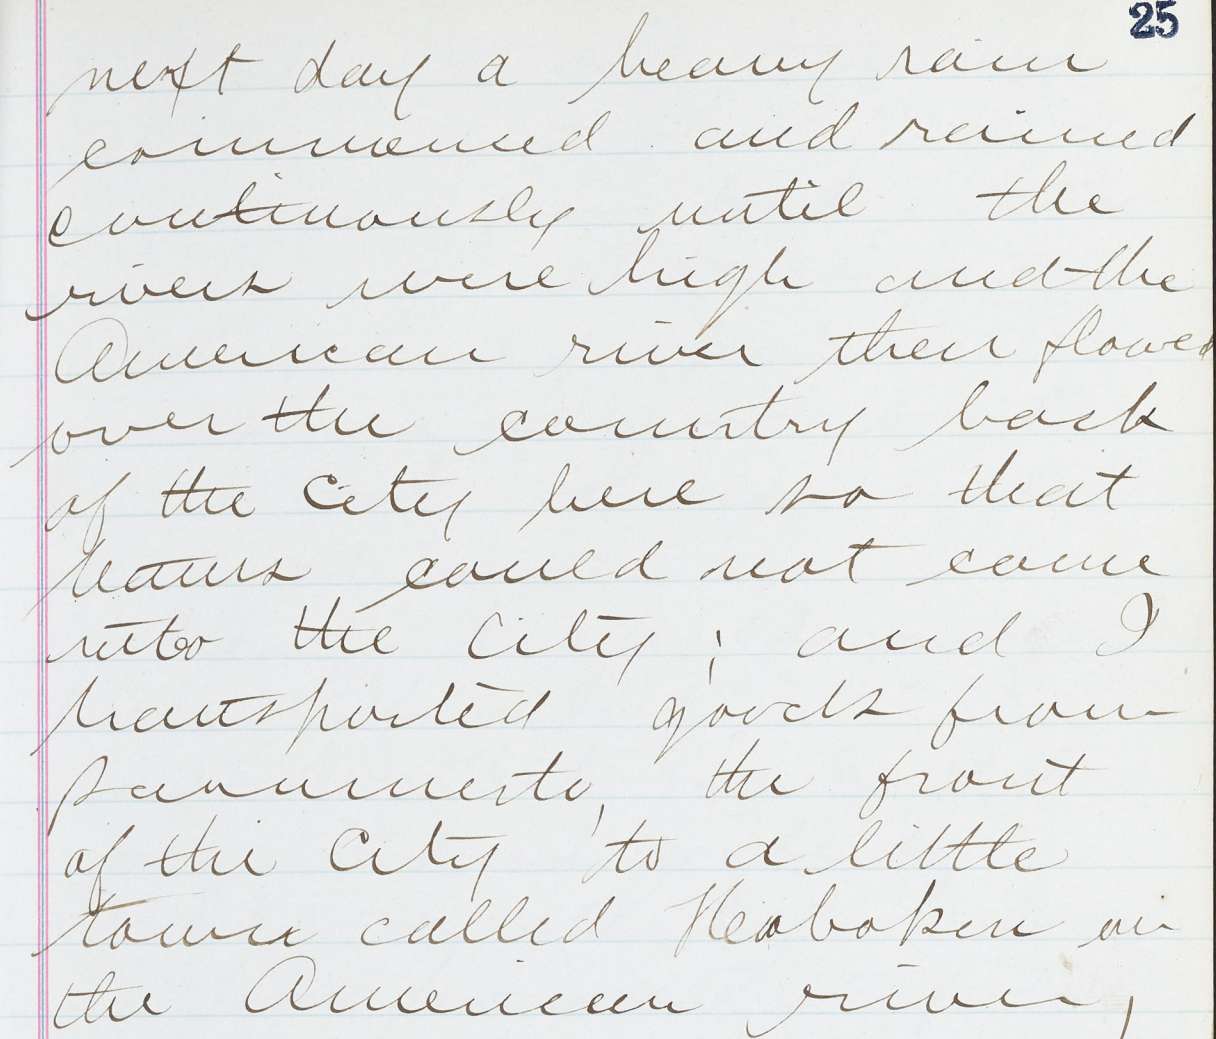 25
next day a heavy rain
commenced and rained
continuously until the
rivers were high and the
American river then flowed
over the country back
of the City here so that
teams could not come
into the City; and I
transported goods from
Sacramento, the front
of the City to a little
town called Heoboken on
the American river,